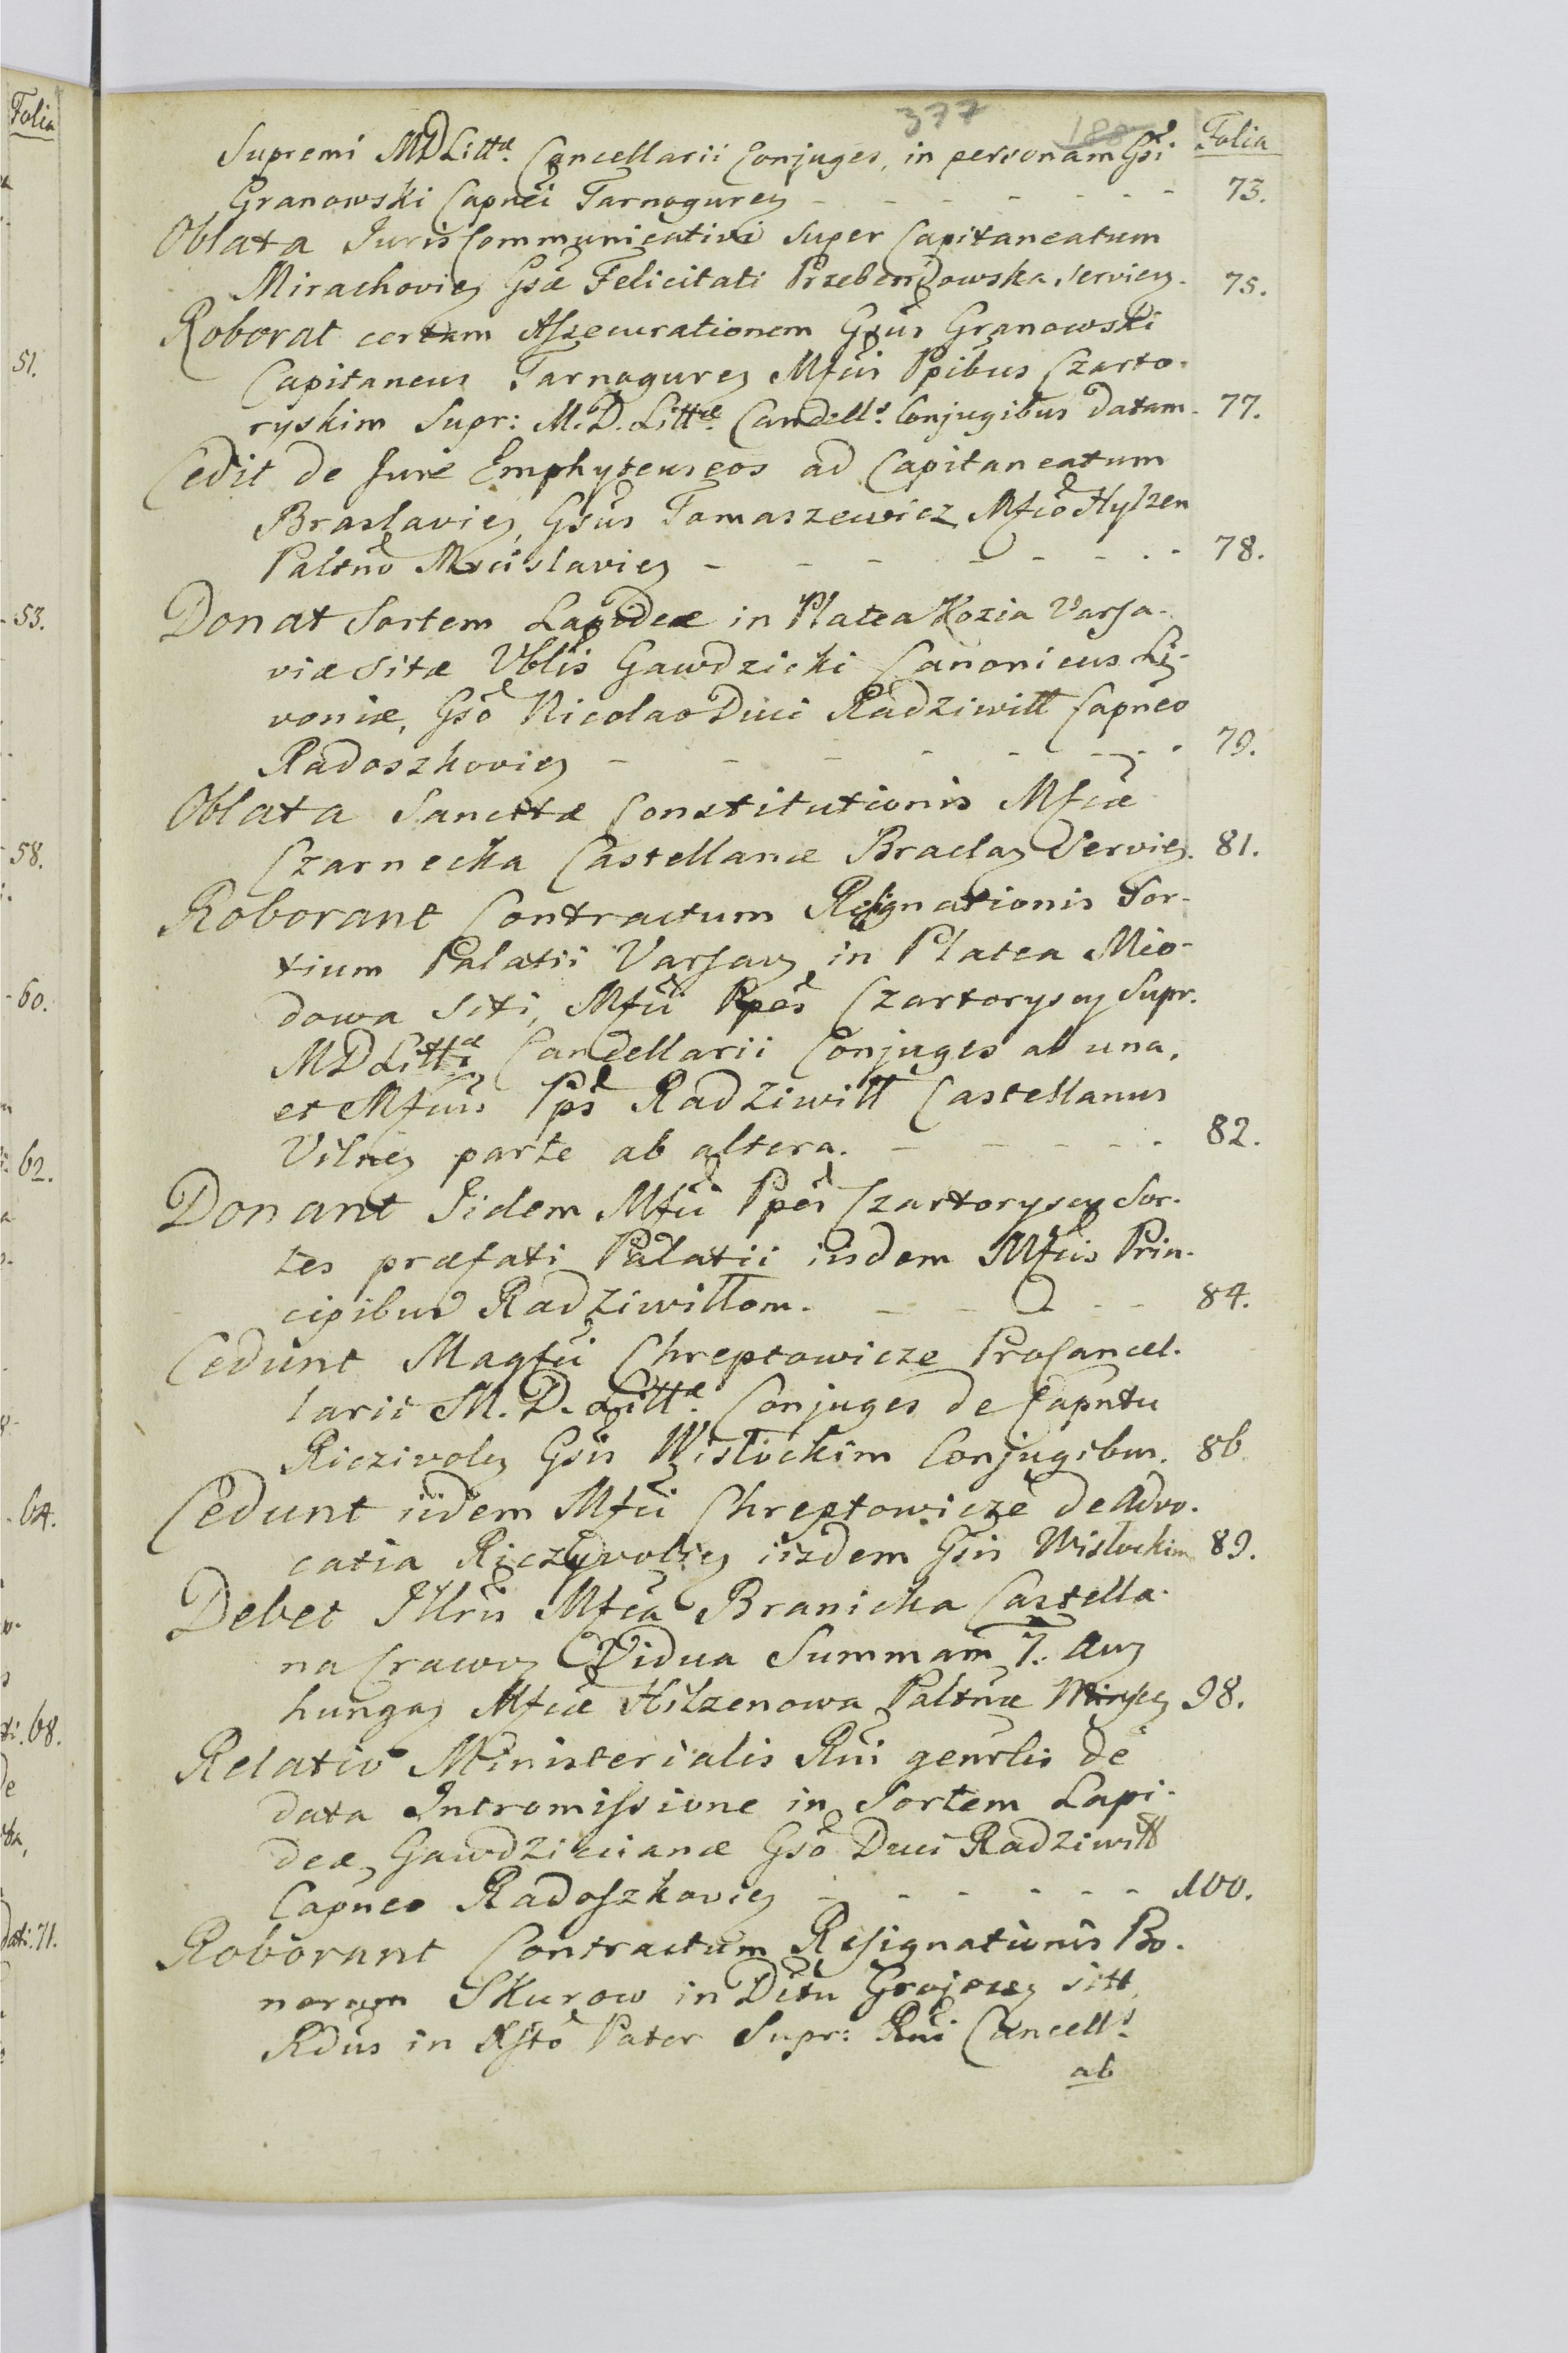 377 188
Folia
Supremi MDLittæ Cancellarii Conjuges, in personam Gsi
Granowski Capnei Tarnogureȝ - - - - - - 73.
Oblata Juris Communicativi super Capitaneatum
Mirachovieȝ Gsæ Felicitati Przebendowska servieȝ. 75.
Roborat certam Assecurationem Gsus Granowski
Capitaneus Tarnogureȝ Mfcis Ppibus Czarto-
ryskim Supr: M.D. Littæ Cancells Conjugibus datam. 77.
Cedit de Jure Emphyteuseos ad Capitaneatum
Braslavieȝ, Gsus Tomaszewicz Mfco Hylzen
Paltno Mscislavieȝ - - - - - - - 78.
Donat Sortem Lapideæ in Platea Kozia Varsa-
viæ sitæ Vblis Gawdzicki Canonicus Li-
voniæ, Gso Nicolao Duci Radziwiłł Capneo
Radoszkovieȝ - - - - - - - 79.
Oblata Sancitæ Constitutionis Mfcæ
Czarnecka Castellanæ Braclaȝ Servieȝ. 81.
Roborant Contractum Resignationis Sor-
tium Palatii Varsavȝ in Platea Mio-
dowa siti, Mfci Ppes Czartoryscy Supr.
MDLittæ Cancellarii Conjuges ab una,
et Mfcus Pps Radziwiłł Castellanus
Vilneȝ parte ab altera. - - - - - 82.
Donant Iidem Mfci Ppes Czartoryscy Sor-
tes præfati Palatii iisdem Mfcis Prin-
cipibus Radziwiłłom. - - - - - 84.
Cedunt Magfci Chreptowicze Procancel-
larii M.D. Littæ Conjuges de Capntu
Riczivoleȝ Gsis Wisłockim Conjugibus. 86
Cedunt iidem Mfci Chreptowicze de Advo-
catia Riczyvolieȝ iisdem Gsis Wisłockim 89.
Debet Illris Mfca Branicka Castella-
na Cravoȝ Vidua Summam 7. Auȝ
hungaȝ Mfcæ Hilzenowa Paltnæ Minseȝ 98.
Relatio Ministerialis Rni genrlis de
data Intromissione in Sortem Lapi-
deæ Gawdzicianæ Gso Duci Radziwiłł
Capneo Radoszkovieȝ - - - - - - 100.
Roborant Contractum Resignationis Bo-
norum Skurow in Dstu Grojeceȝ sitt.
Rdus in Xsto Pater Supr: Rni Cancells
ab
Folia
51.
53.
58.
60.
62.
64.
68.
71.